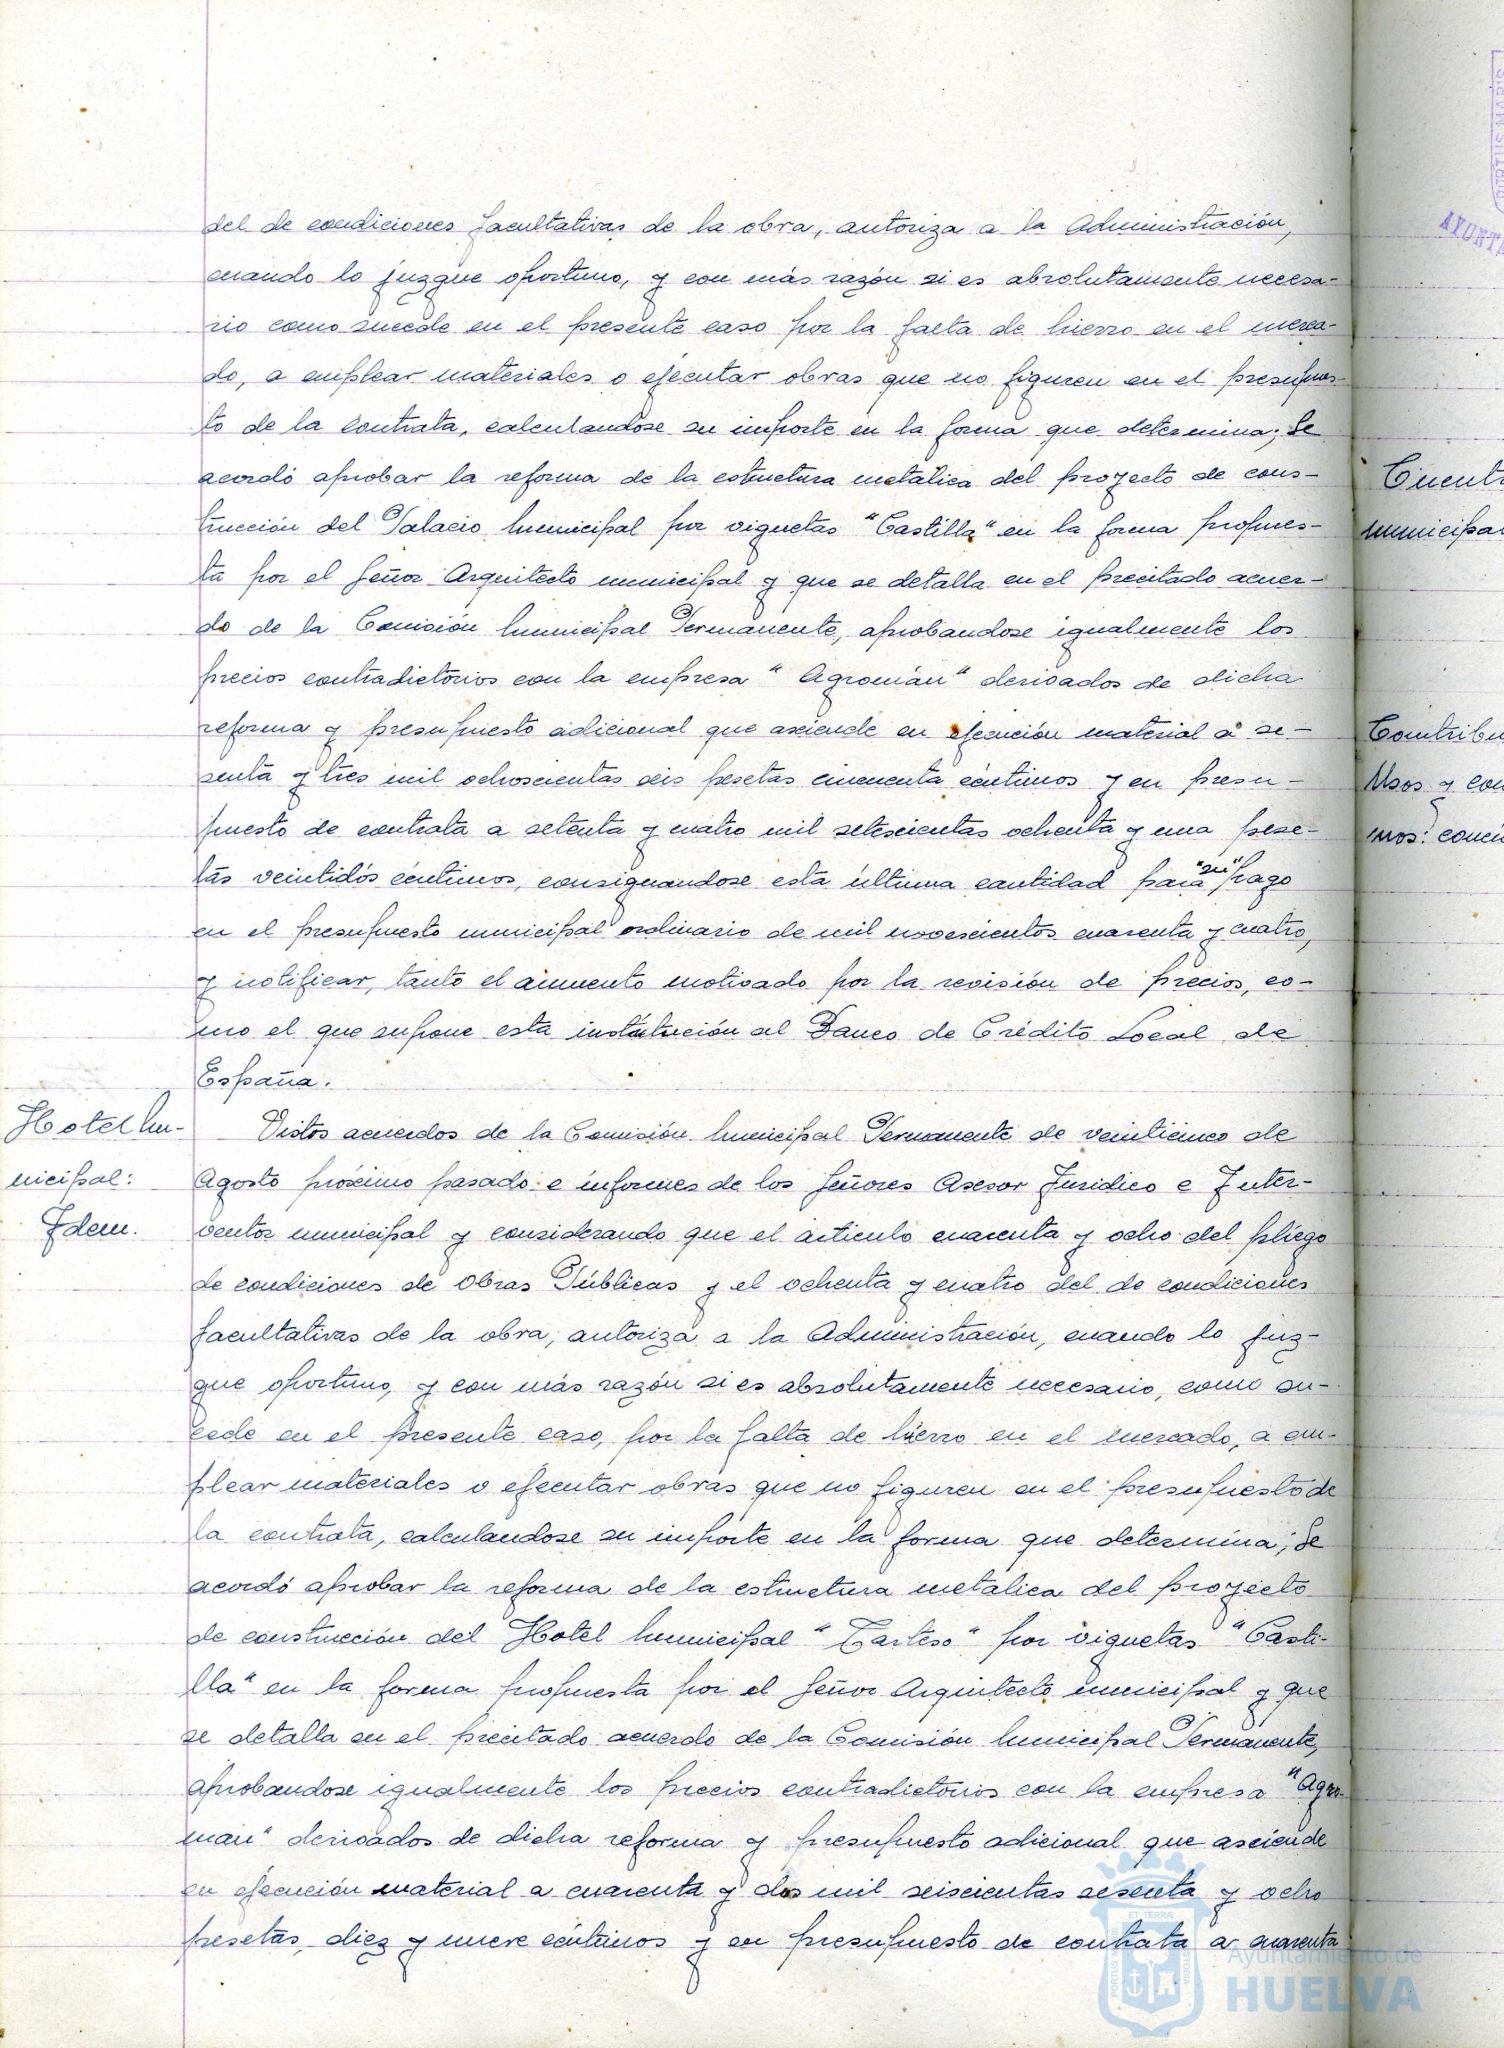 del de condiciones facultativas de la obra, autoriza a la Administración,
cuando lo juzgue oportuno, y con más razón si es absolutamente necesa-
rio como sucede en el presente caso por la falta de hierro en el merca-
do, a emplear materiales o ejecutar obras que no figuren en el presupues-
to de la contrata, calculandose su importe en la forma que determina; Se
acordó aprobar la reforma de la estructura metálica del proyecto de cons-
trucción del Palacio Municipal por viguetas "Castilla" en la forma propues-
ta por el Señor Arquitecto municipal y que se detalla en el precitado acuer-
do de la Comisión Municipal Permanente, aprobandose igualmente los
precios contradictorios con la empresa "Agromán" derivados de dicha
reforma y presupuesto adicional que asciende en ejecución material a se-
senta y tres mil ochoscientas seis pesetas cincuenta céntimos y en presu-
puesto de contrata a setenta y cuatro mil setescientas ochenta y una pese-
tas veintidós céntimos, consignandose esta última cantidad para "su" pago
en el presupuesto municipal ordinario de mil novescientos cuarenta y cuatro,
y notificar, tanto el aumento motivado por la revisión de precios, co-
mo el que supone esta institución al Banco de Crédito Local de
España.
Hotel Mu-
nicipal:
Idem.
Vistos acuerdos de la Comisión Municipal Permanente de veinticinco de
Agosto próximo pasado e informes de los Señores Asesor Jurídico e Inter-
ventor municipal y considerando que el artículo cuarenta y ocho del pliego
de condiciones de Obras Públicas y el ochenta y cuatro del de condiciones
facultativas de la obra, autoriza a la Administración, cuando lo juz-
gue oportuno, y con más razón si es absolutamente necesario, como su-
cede en el presente caso, por la falta de hierro en el mercado, a em-
plear materiales o ejecutar obras que no figuren en el presupuesto de
la contrata, calculandose su importe en la forma que determina; Se
acordó aprobar la reforma de la estructura metalica del proyecto
de construcción del Hotel Municipal "Tarteso" por viguetas "Casti-
lla" en la forma propuesta por el Señor Arquitecto municipal y que
se detalla en el precitado acuerdo de la Comisión Municipal Permanente,
aprobandose igualmente los precios contradictorios con la empresa "Agro-
man" derivados de dicha reforma y presupuesto adicional que asciende
en ejecución material a cuarenta y dos mil seiscientas sesenta y ocho
pesetas, diez y nueve céntimos y en presupuesto de contrata a cuarenta
municipal
Contribu
Usos y con
mos:
ET TERRÆ
Ayuntamiento de
HUELVA